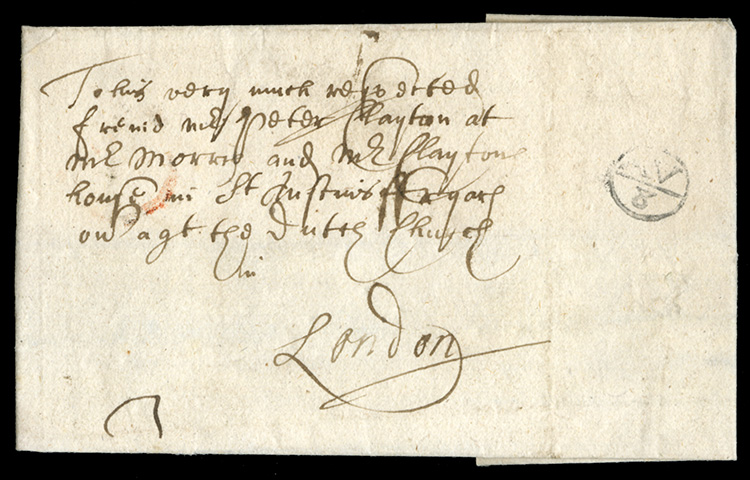 To his very much respected
freind mr Peter Clayton at
mr Morris and mr Claytons
house in St Austins ffryars
on agt the Dutch Church
in
London